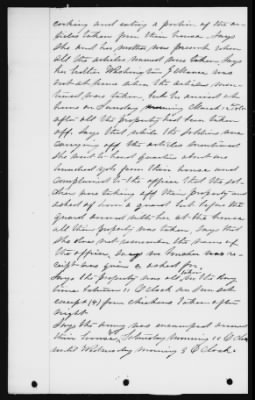 cooking and eating a portion of the ar-
ticles taken from their house. Says
she and her mother were present when
all the articles named were taken. Says
her brother Washington J
not at home when the articles men-
tioned was taken, but he arrived at
home on Sunday morning March
after all the property had been taken
off. Says that while the soldiers were
carrying off the articles mentioned
she went to head quarters about one
hundred yds from their house and
complained to the officer that the sol-
diers were taking off their property and
asked of him a guard but before the
guard arrived with her at the house
all their property was taken, Says that
she does not remember the name of
the officer. Says no voucher was re-
ceipt was given or asked for.
Says the property was all taken in the day
time between 11 O'clock and Sun set
except (4) four chickens taken after
night
Says the army was encamped around
their house Saturday morning 11 O'clock
until Wednesday morning 3 O'clock.